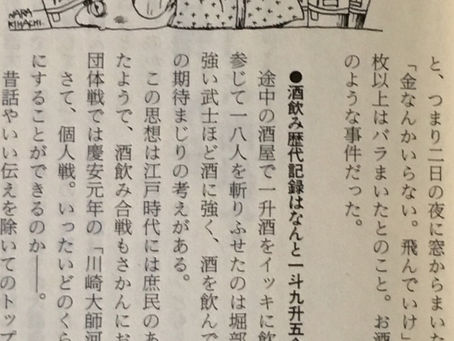 と、つまり二日の夜に窓からまいた
「金なんかいらない。飛んでいけ」
枚以上はバラまいたとのこと。お酒
のような事件だった。
●酒飲み歴代記録はなんと一斗九升五合
途中の酒屋で一升酒をイッキに飲
参じて一八人を斬りふせたのは堀部
強い武士ほど酒に強く、酒を飲んで
の期待まじりの考えがある。
この思想は江戸時代には庶民のあ
たようで、酒飲み合戦もさかんにお
団体戦では慶安元年の「川崎大師河
さて、個人戦。いったいどのくら
にすることができるのか――。
昔話やいい伝えを除いてのトップ